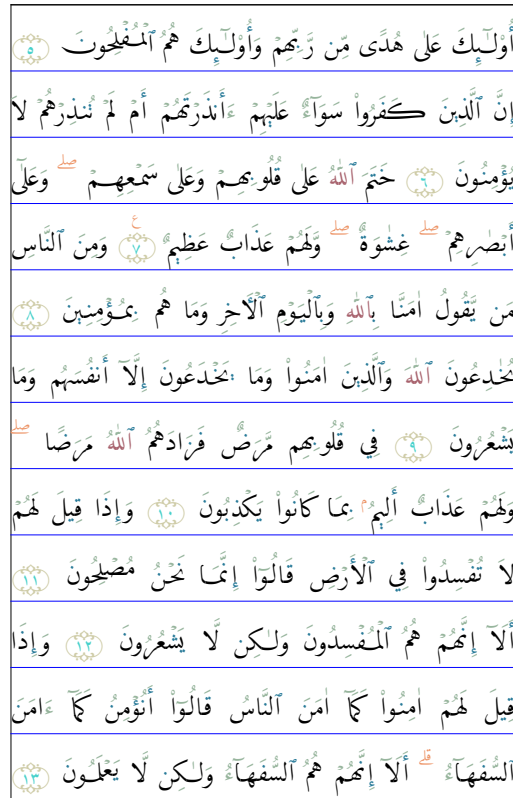 أُوْلَـٰٓئِكَ عَلَىٰ هُدًى مِّن رَّبِّهِمْ وَأُوْلَـٰٓئِكَ هُمُ ٱلْمُفْلِحُونَ ٥
إِنَّ ٱلَّذِينَ كَفَرُوا۟ سَوَآءٌ عَلَيْهِمْ ءَأَنذَرْتَهُمْ أَمْ لَمْ تُنذِرْهُمْ لَا
يُؤْمِنُونَ ٦ خَتَمَ ٱللَّهُ عَلَىٰ قُلُوبِهِمْ وَعَلَىٰ سَمْعِهِمْ ۖ وَعَلَىٰٓ
أَبْصَٰرِهِمْ ۖ غِشَٰوَةٌ ۖ وَّلَهُمْ عَذَابٌ عَظِيمٌ ٧ ع وَمِنَ ٱلنَّاسِ
مَن يَّقُولُ اٰمَنَّا بِٱللَّهِ وَبِٱلْيَوْمِ ٱلْاَخِرِ وَمَا هُم بِمُؤْمِنِينَ ٨
يُخَٰدِعُونَ ٱللَّهَ وَٱلَّذِينَ اٰمَنُوا۟ وَمَا يَخْدَعُونَ إِلَّآ أَنفُسَهُم وَمَا
يَشْعُرُونَ ٩ فِي قُلُوبِهِم مَّرَضٌ فَزَادَهُمُ ٱللَّهُ مَرَضًا ۖ
وَلَهُمْ عَذَابٌ أَلِيمٌۢ بِمَا كَانُوا۟ يَكْذِبُونَ ١٠ وَإِذَا قِيلَ لَهُمْ
لَا تُفْسِدُوا۟ فِي ٱلْأَرْضِ قَالُوٓا۟ إِنَّمَا نَحْنُ مُصْلِحُونَ ١١
أَلَآ إِنَّهُمْ هُمُ ٱلْمُفْسِدُونَ وَلَـٰكِن لَّا يَشْعُرُونَ ١٢ وَإِذَا
قِيلَ لَهُمْ اٰمِنُوا۟ كَمَآ اٰمَنَ ٱلنَّاسُ قَالُوٓا۟ أَنُؤْمِنُ كَمَآ ءَامَنَ
ٱلسُّفَهَآءُ ۗ أَلَآ إِنَّهُمْ هُمُ ٱلسُّفَهَآءُ وَلَـٰكِن لَّا يَعْلَمُونَ ١٣